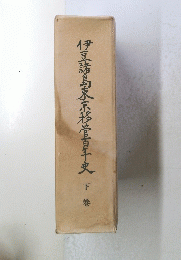 伊豆諸島東京移管百年史
下巻